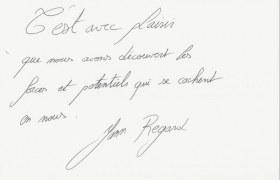 C'est avec plaisir
que nous avons découvert les
forces et potentiels qui se cachent
en nous.
Yann Regard